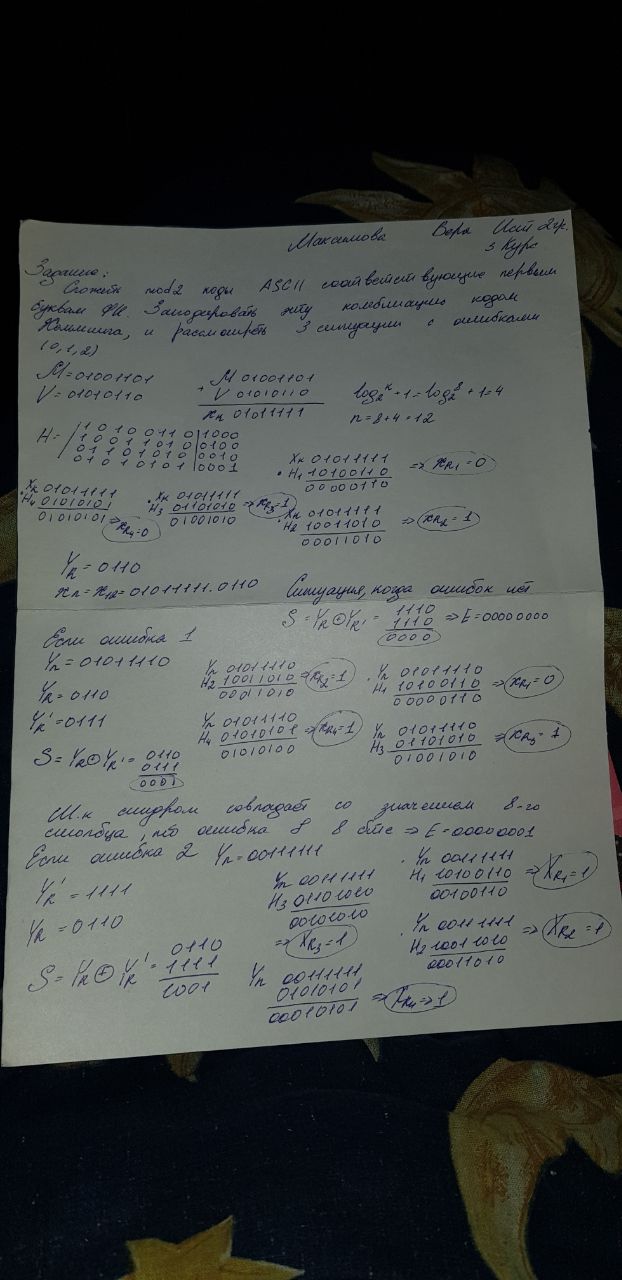 Максимова Вера Исит 2гр.
3 Курс
Задание:
Сложить mod2 коды ASCII соответствующие первым
буквам ФИ. Закодировать эту комбинацию кодом
Хемминга, и рассмотреть 3 ситуации с ошибками
(0,1,2)
M=01001101
V=01010110
M 01001101
+ V 01010110
xк 01011111
log₂ᴷ+1=log₂⁸+1=4
n=8+4=12
H=
1 0 1 0 0 1 1 0 | 1000
1 0 0 1 1 0 1 0 | 0100
0 1 1 0 1 0 1 0 | 0010
0 1 0 1 0 1 0 1 | 0001
Xк 01011111
· H1 10100110 => xR1=0
00000110
Xк 01011111
· H4 01010101
01010101 => xR4=0
· Xк 01011111
H3 01101010 => xR3=1
01001010
· Xк 01011111
H2 10011010 => xR2=1
00011010
YR=0110
xn=x12=01011111.0110
Ситуация, когда ошибок нет
S=YR⊕YR'= 1110
1110 => E=00000000
0000
Если ошибка 1
Yn=01011110
YR=0110
YR'=0111
S=YR⊕YR'= 0110
0111
0001
Yn 01011110
H2 10011010 => xR2=1
00011010
· Yn 01011110
H1 10100110 => xR1=0
00000110
Yn 01011110
H4 01010101 => xR4=1
01010100
Yn 01011110
H3 01101010 => xR3=1
01001010
Т.к синдром совпадает со значением 8-го
столбца, то ошибка в 8 бите => E=00000001
Если ошибка 2 Yn=00111111
YR'=1111
YR=0110
S=YR⊕YR'= 0110
1111
1001
Yn 00111111
H3 01101010
00101010
=> XR3=1
· Yn 00111111
H1 10100110 => XR1=1
00100110
· Yn 00111111
H2 10011010 => XR2=1
00011010
Yn 00111111
01010101 => XR4=>1
00010101